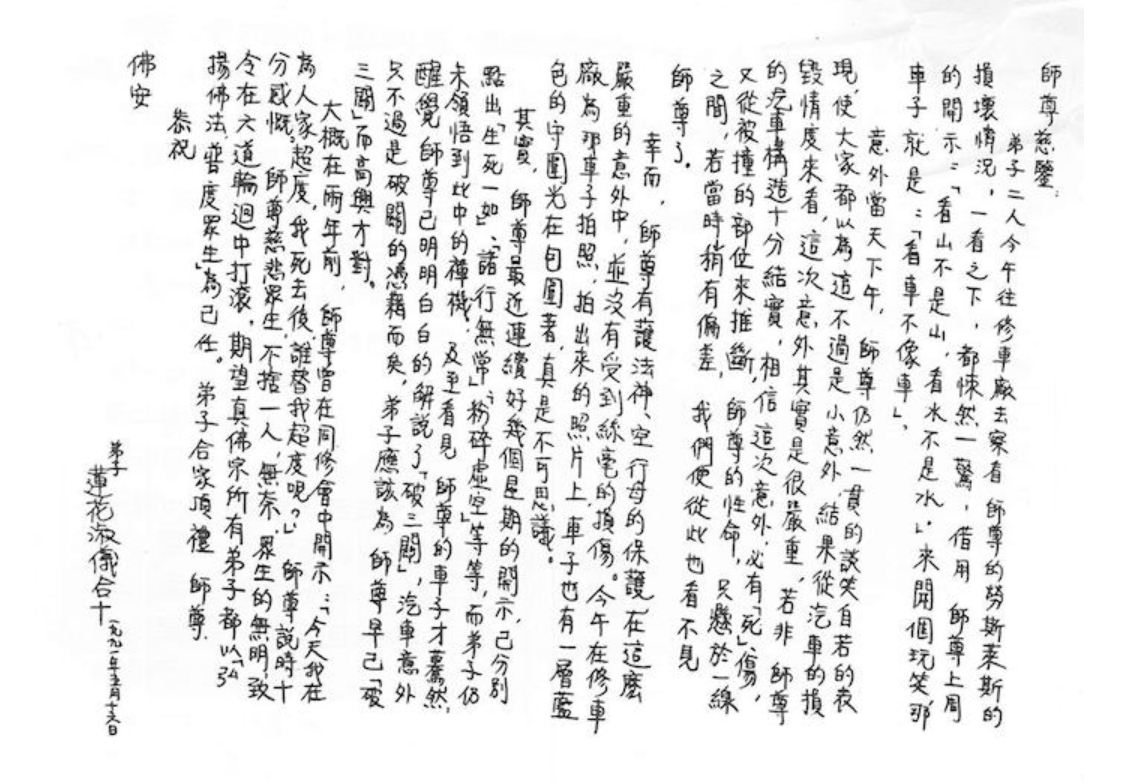 師尊慈鑒：
弟子二人今午往修車廠去察看 師尊的勞斯萊斯的
損壞情況，一看之下，都悚然一驚，借用 師尊上周
的開示：「看山不是山，看水不是水。」來開個玩笑，那
車子就是：「看車不像車」。
意外當天下午，師尊仍然一貫的談笑自若的表
現，使大家都以為這不過是小意外，結果從汽車的損
毀情度來看，這次意外其實是很嚴重，若非 師尊
的汽車構造十分結實，相信這次意外，必有「死」傷，
又從被撞的部位來推斷，師尊的性命，只懸於一線
之間，若當時稍有偏差，我們便從此也看不見
師尊了。
幸而，師尊有護法神、空行母的保護，在這麼
嚴重的意外中，並沒有受到絲毫的損傷。今午在修車
廠為那車子拍照，拍出來的照片上，車子也有一層藍
色的守圍光在包圍著，真是不可思議。
其實，師尊最近連續好幾個星期的開示，已分別
點出「生死一如」、「諸行無常」、「粉碎虛空」等等，而弟子仍
未領悟到此中的禪機，及至看見 師尊的車子才驀然
醒覺，師尊已明明白白的解說了「破三關」，汽車意外
只不過是破關的憑藉而矣，弟子應該為 師尊早已「破
三關」而高興才對。
大概在兩年前，師尊曾在同修會中開示：「今天我在
為人家超度，我死去後，誰替我超度呢？」師尊說時十
分感慨。師尊慈悲眾生，不捨一人，無奈，眾生的無明，致
令在六道輪迴中打滾，期望真佛宗所有弟子都以「弘
揚佛法，普度眾生」為己任。 弟子合家頂禮 師尊.
恭祝
佛安
弟子
蓮花淑儀合十 一九九一年五月十六日